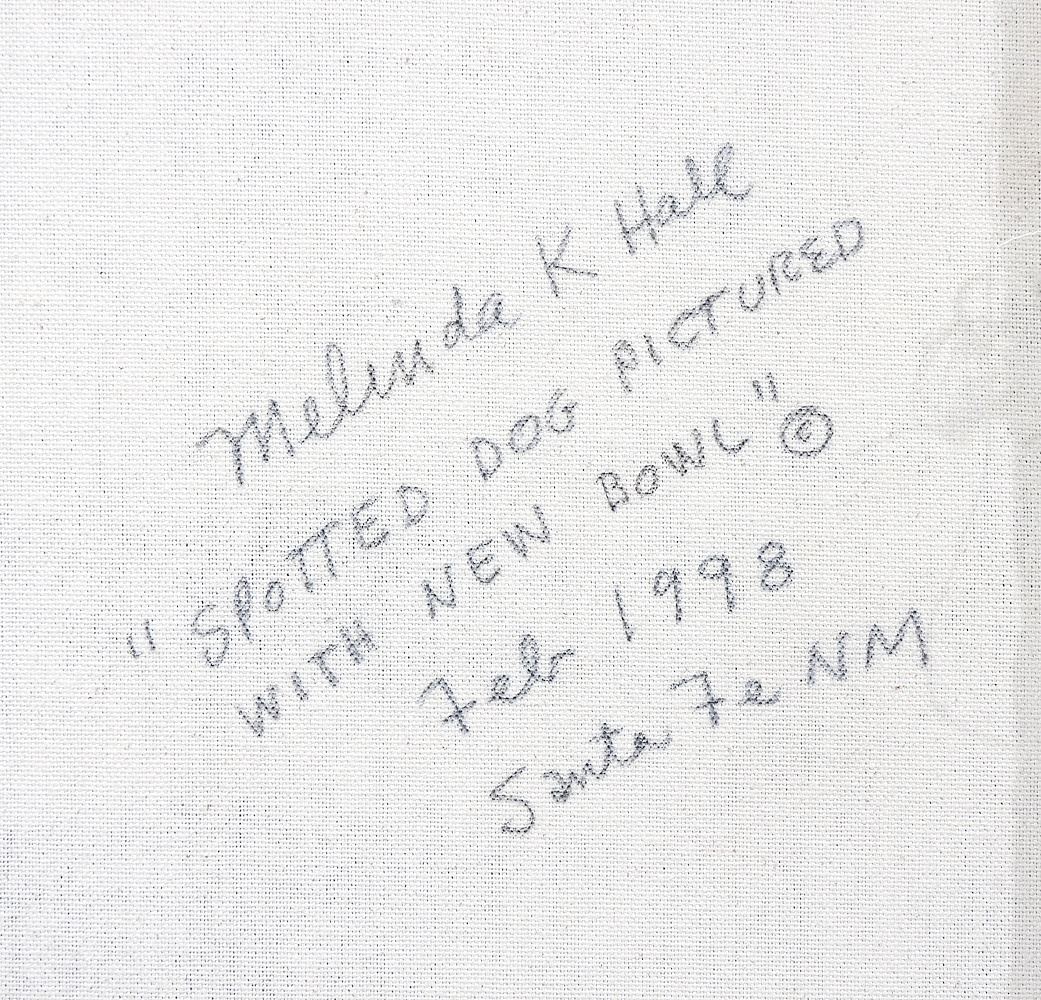 Melinda K Hall
"SPOTTED DOG PICTURED
WITH NEW BOWL" ©
Feb 1998
Santa Fe NM